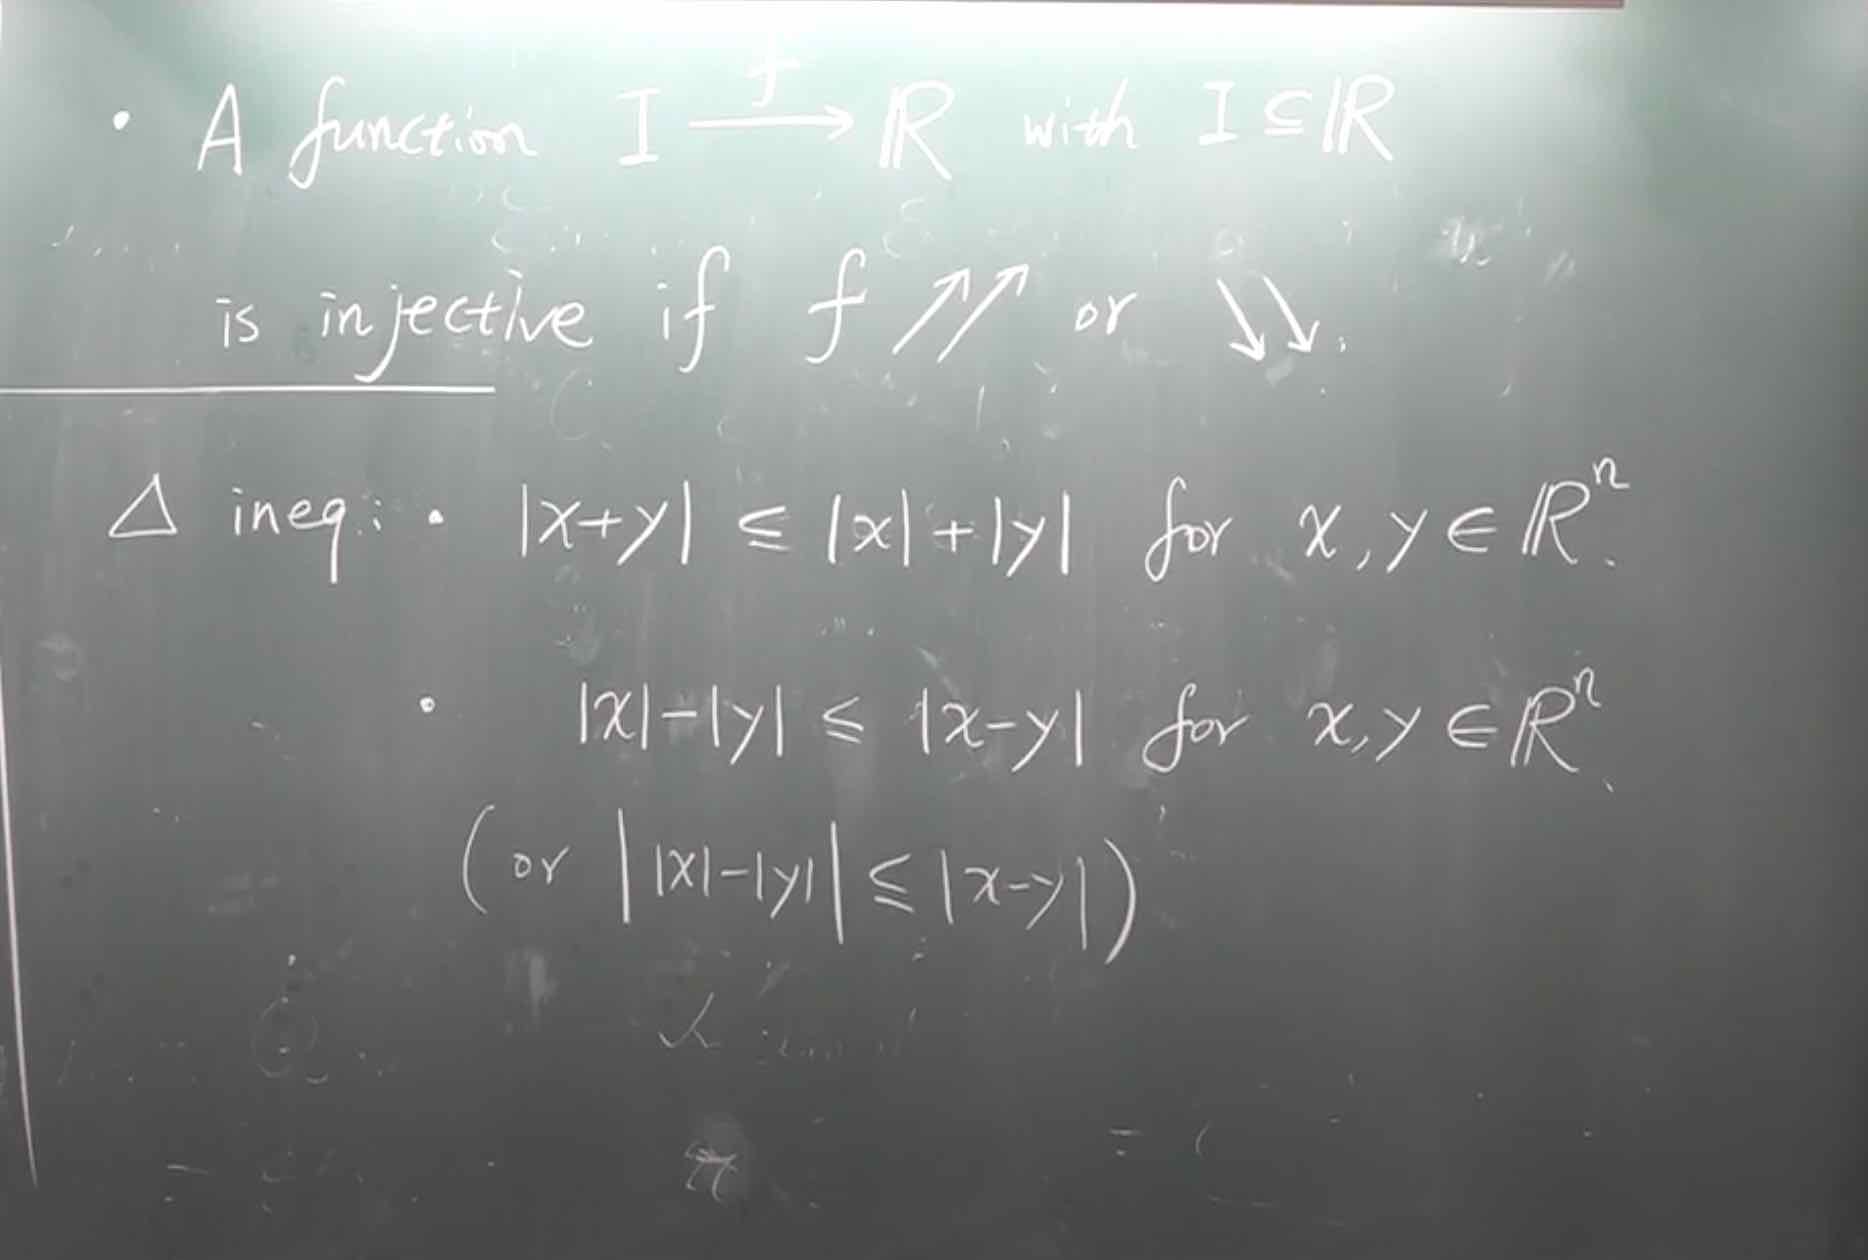 • A function I —f→ ℝ with I ⊆ ℝ
is injective if f ↗↗ or ↘↘.
△ ineq: • |x+y| ≤ |x|+|y| for x, y ∈ ℝⁿ.
• |x|-|y| ≤ |x-y| for x, y ∈ ℝⁿ.
(or ||x|-|y|| ≤ |x-y|)